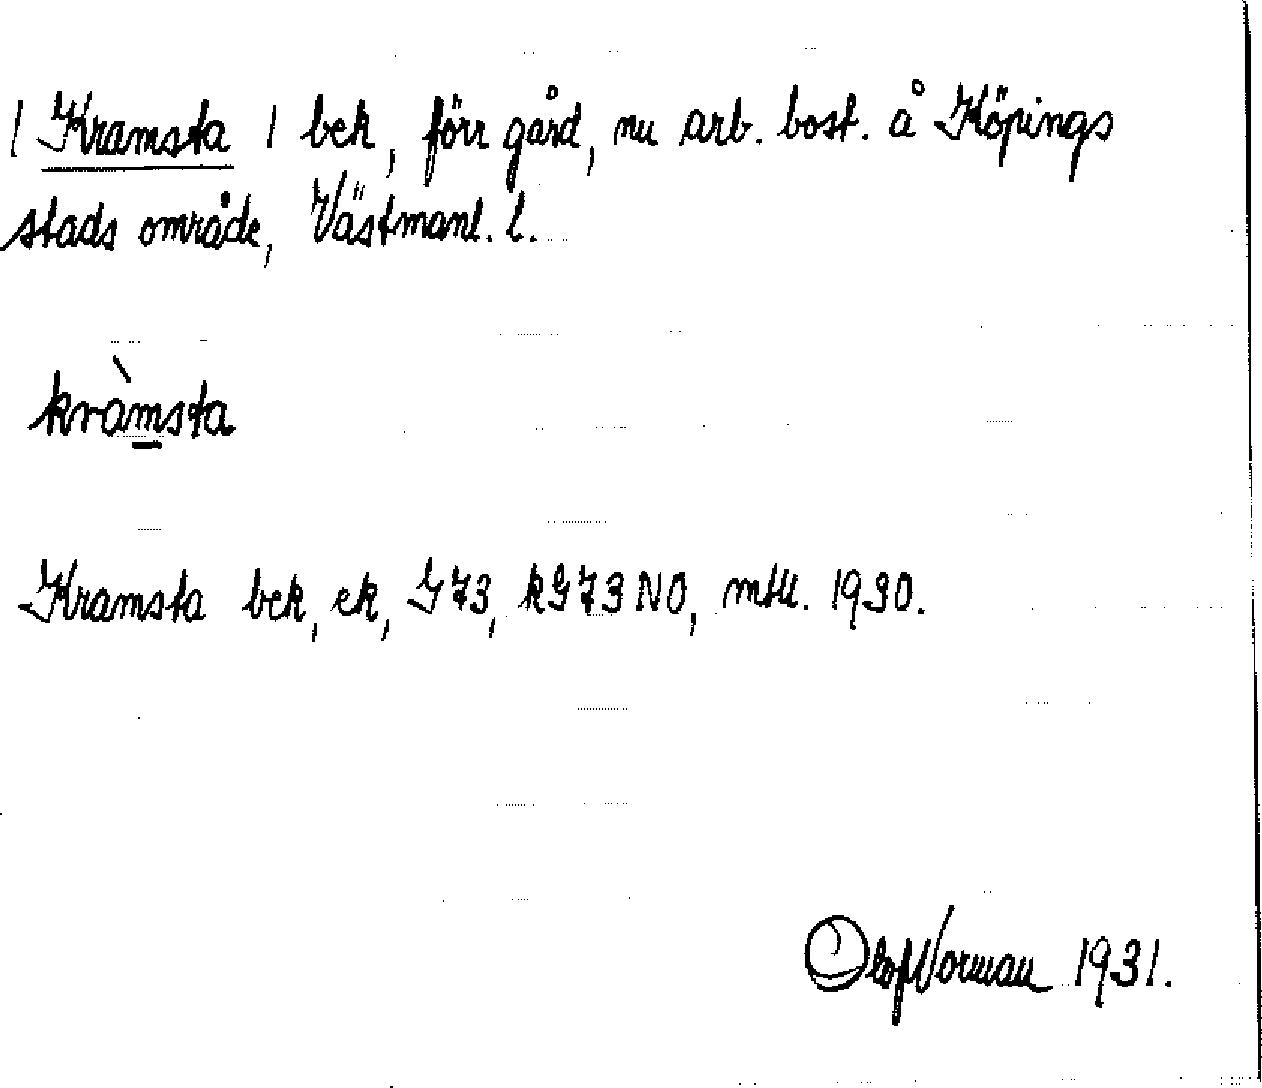 / Kramsta / bek, förr gård, nu arb. bost. å Köpings
stads område, Västmanl. l.
kràmsta
Kramsta bek, ek, G73, kG73NO, mtll. 1930.
Olof Norman 1931.